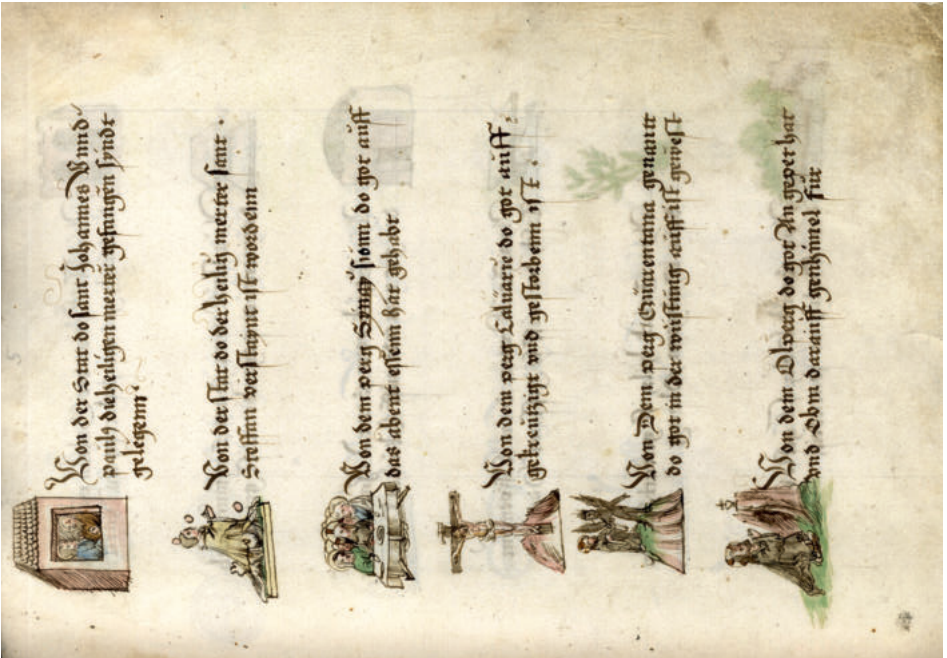 Von der Stat do sant Johannes Vnnd
pauls die heiligen merter gefangen syndt
gelegem
Von der stat do der heilig merter sant
Steffan verstaint ist wordenn
Von dem perg Synay sionn do got auff
das abent essenn hat gehabt
Von dem perg Caluarie do got auff
gekreuzigt vnd gestorbenn ist
Von Dem perg genant
do got in der wüsting auff ist gewest
Von dem Olperg do got An gepet hat
vnd Obm darauff gen himel für